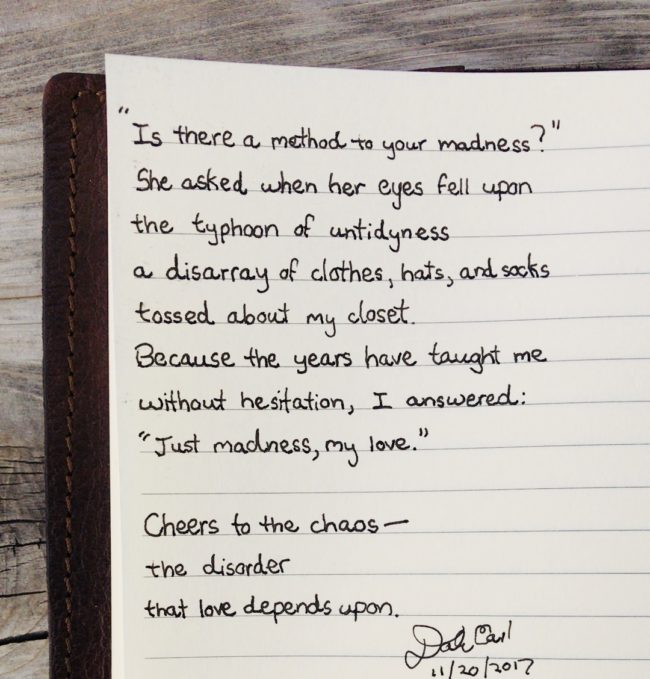 "Is there a method to your madness?"
She asked when her eyes fell upon
the typhoon of untidyness
a disarray of clothes, hats, and socks
tossed about my closet.
Because the years have taught me
without hesitation, I answered:
"Just madness, my love."
Cheers to the chaos—
the disorder
that love depends upon.
11/20/2017